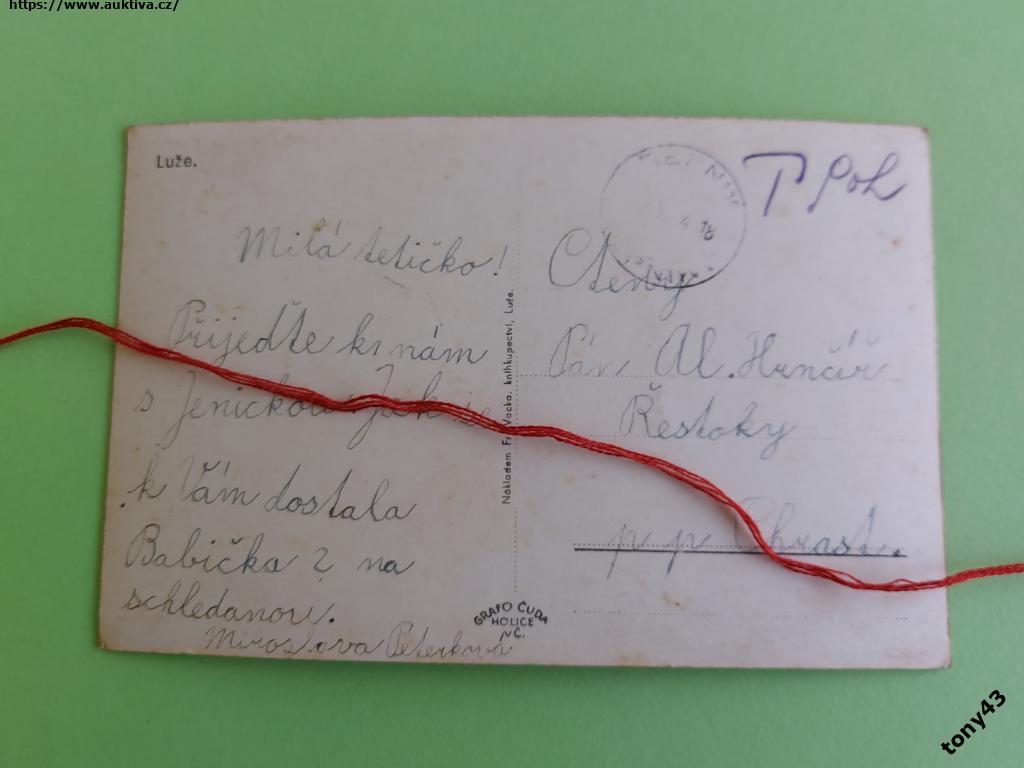 https://www.auktiva.cz/
Luže.
T Poh
4 18
Milá tetičko!
Přijeďte k nám
s Jeničkou Jak se
k Vám dostala
Babička? na
schledanou.
Miroslava Peterková
Nákladem Fr. Vacka, knihkupectví, Luže.
GRAFO ČUDA
HOLICE
Ctěný
Pán Al. Hunčár
Řestoky
p p Chrast.
tony43